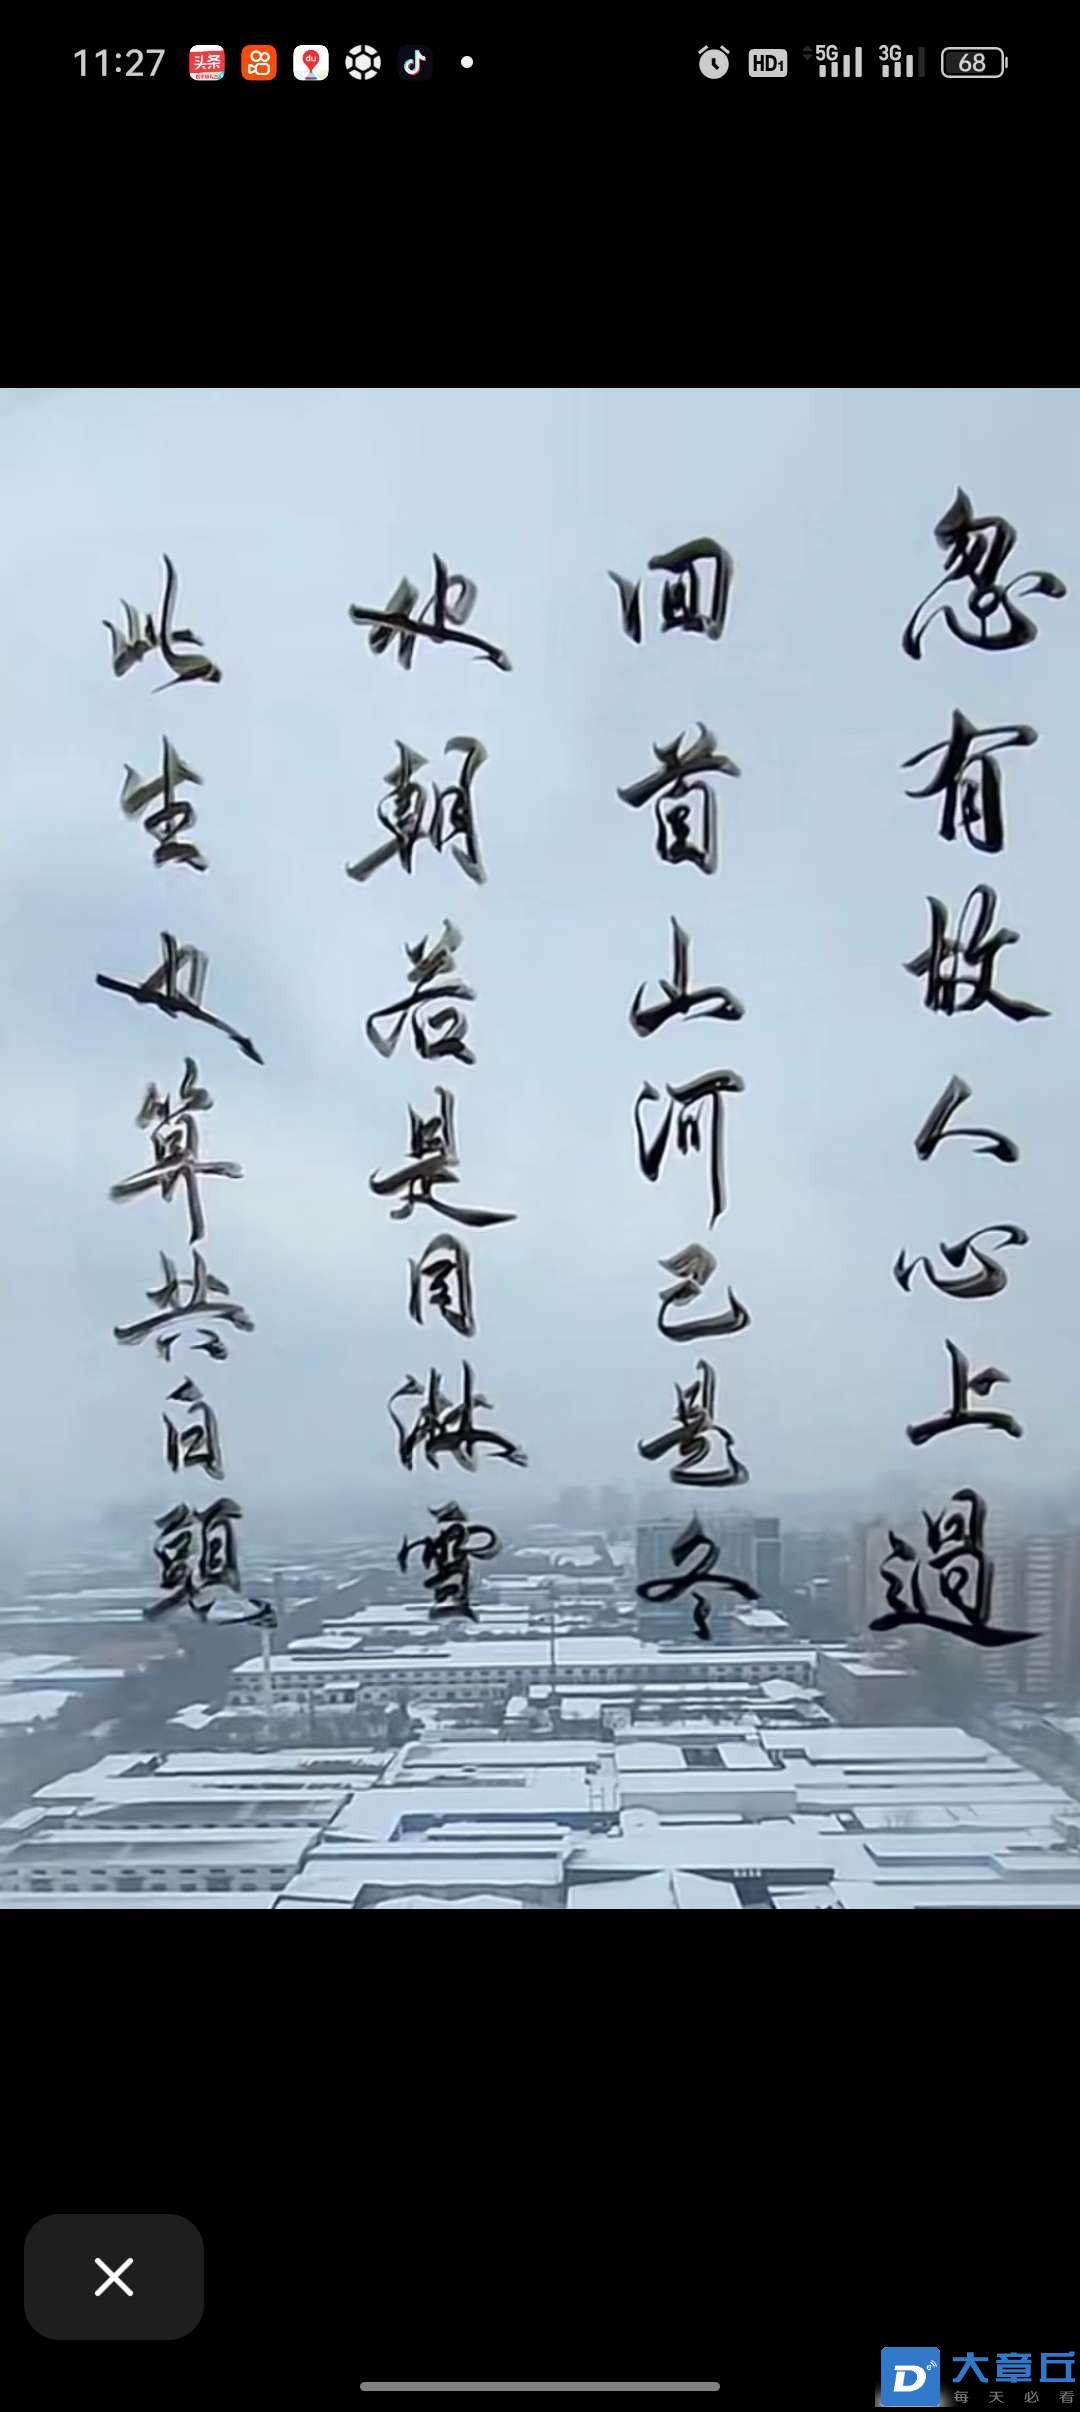 11:27
头条
du
HD1
5G
3G
68
忽有故人心上過
回首山河已是冬
他朝若是同淋雪
此生也算共白頭
D
大章丘
每天必看